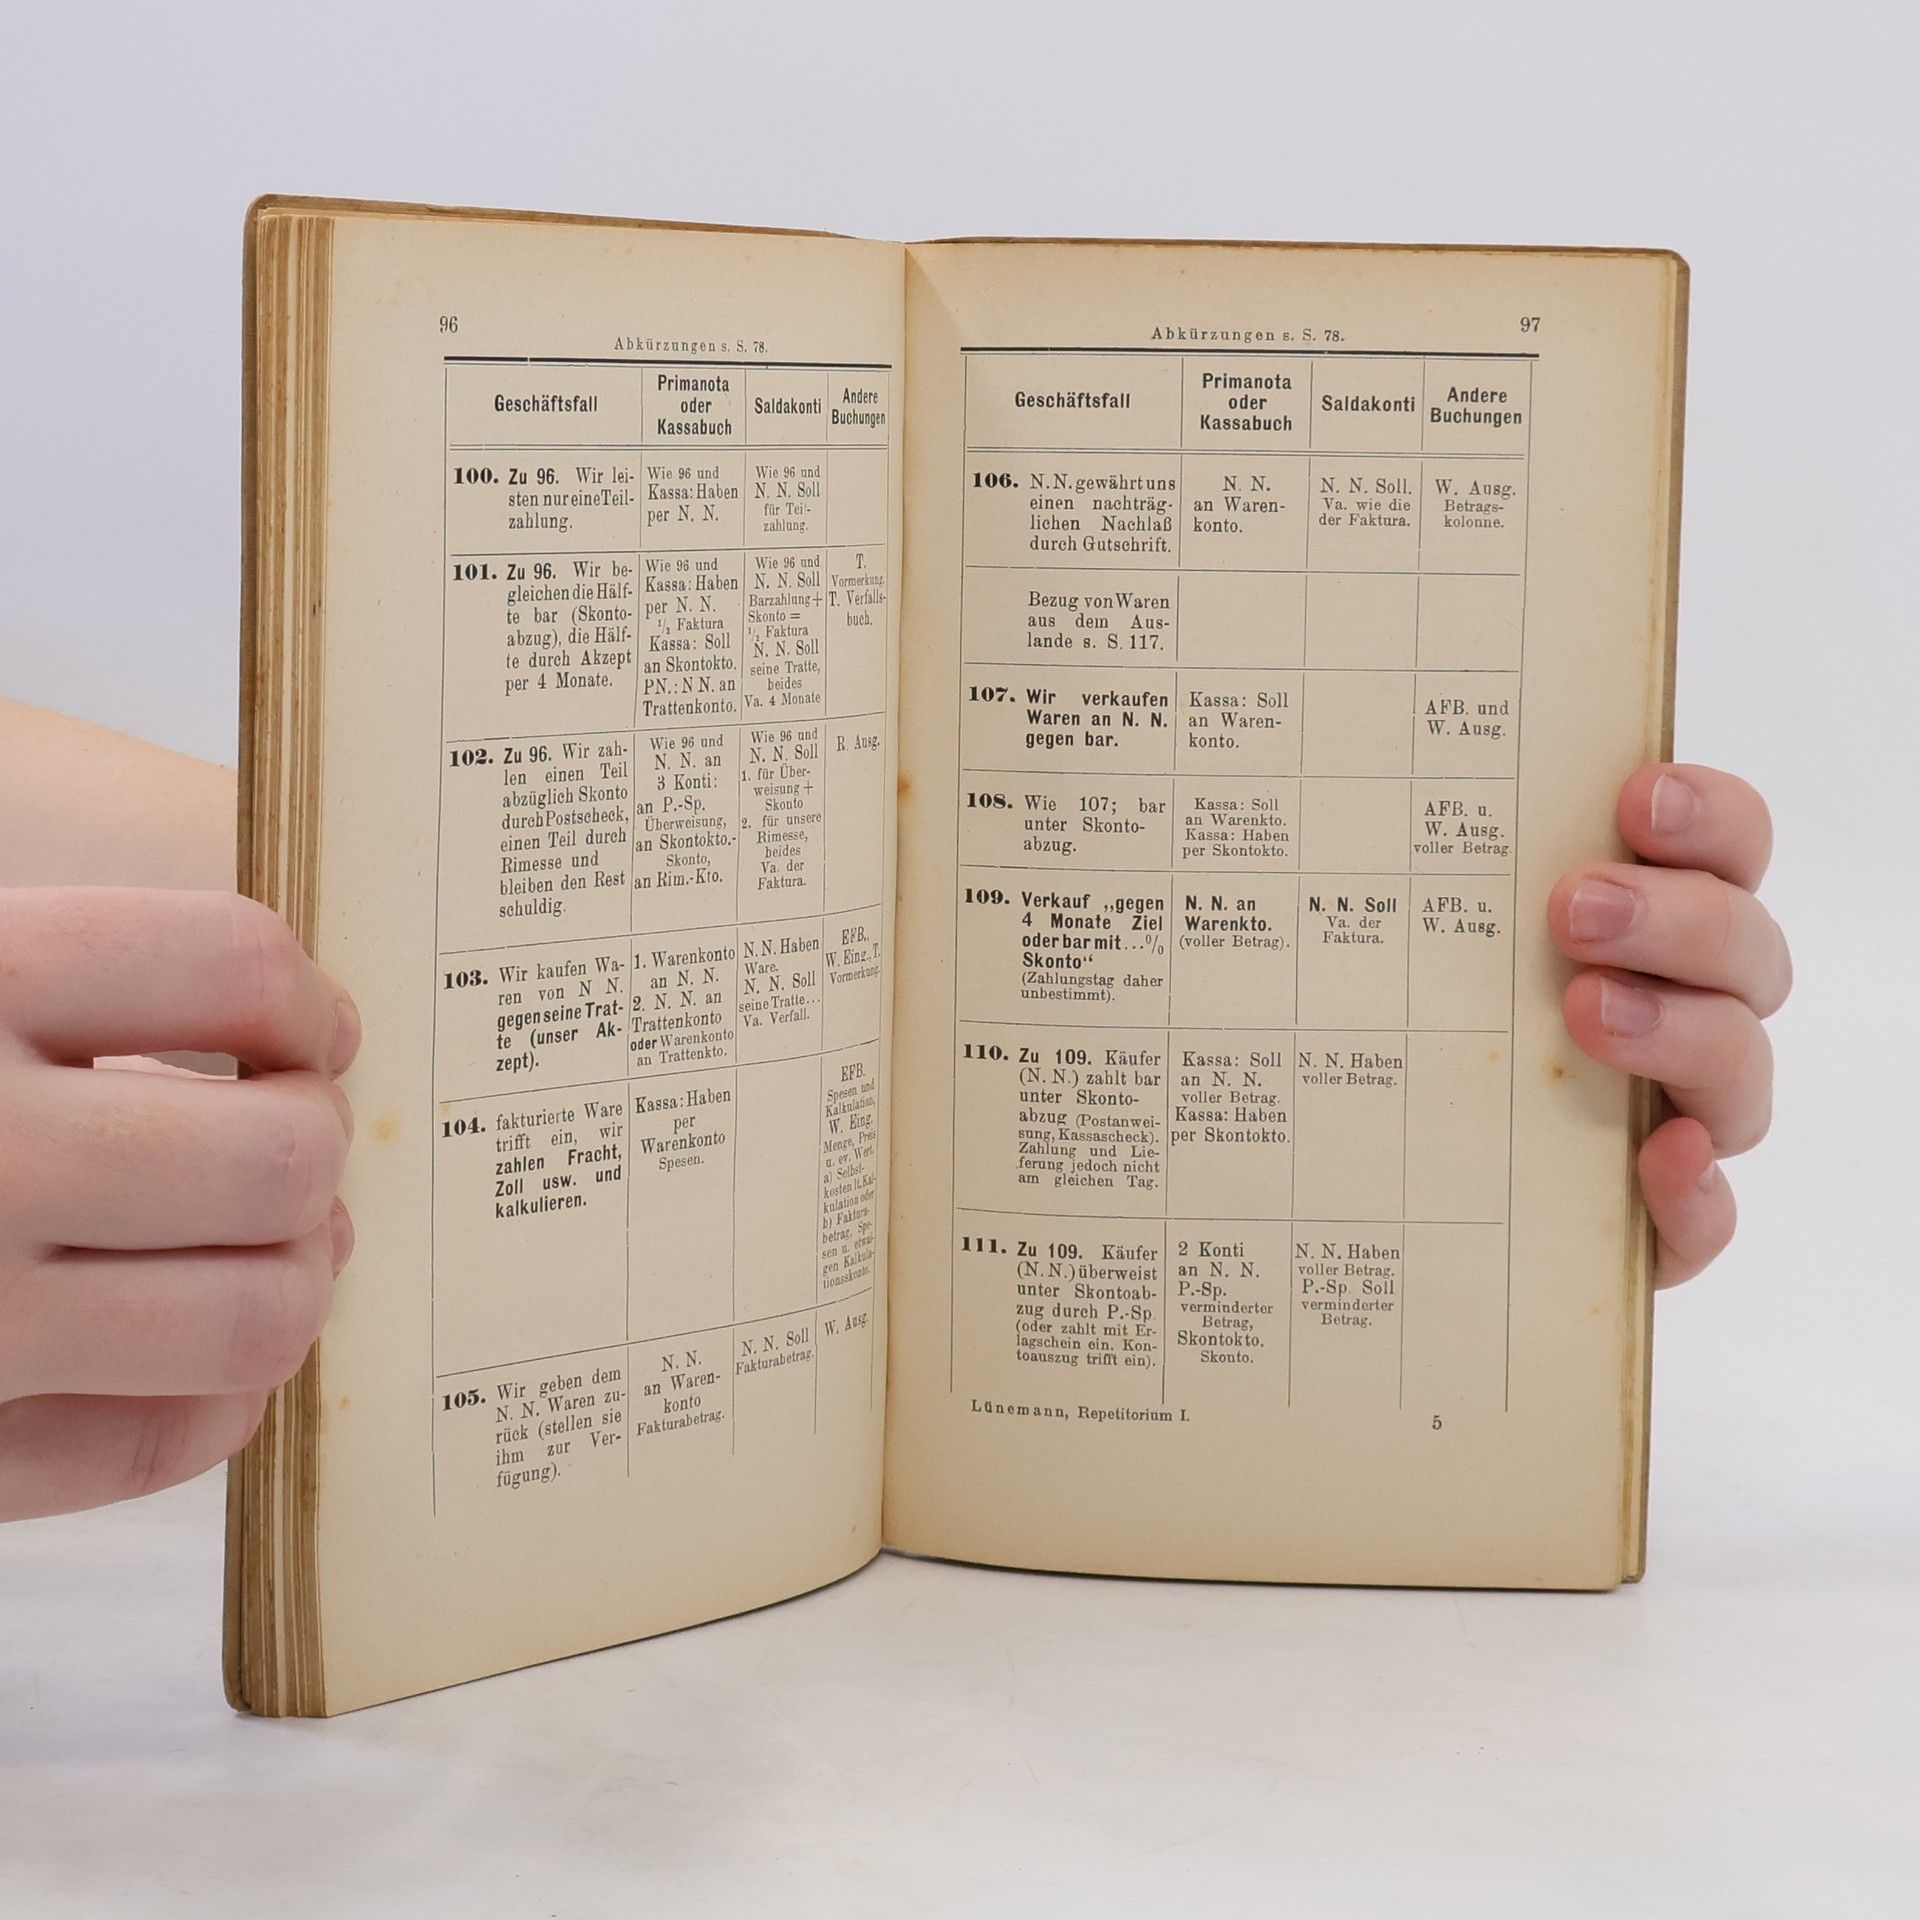 96
Abkürzungen s. S. 78.
Geschäftsfall
Primanota
oder
Kassabuch
Saldakonti
Andere
Buchungen
100. Zu 96. Wir lei-
sten nur eine Teil-
zahlung.
Wie 96 und
Kassa: Haben
per N. N.
Wie 96 und
N. N. Soll
für Teil-
zahlung.
101. Zu 96. Wir be-
gleichen die Hälf-
te bar (Skonto-
abzug), die Hälf-
te durch Akzept
per 4 Monate.
Wie 96 und
Kassa: Haben
per N. N.
1/2 Faktura
Kassa: Soll
an Skontokto.
PN.: N N. an
Trattenkonto.
Wie 96 und
N. N. Soll
Barzahlung +
Skonto =
1/2 Faktura
N. N. Soll
seine Tratte,
beides
Va. 4 Monate
T.
Vormerkung.
T. Verfalls-
buch.
102. Zu 96. Wir zah-
len einen Teil
abzüglich Skonto
durch Postscheck,
einen Teil durch
Rimesse und
bleiben den Rest
schuldig.
Wie 96 und
N. N. an
3 Konti:
an P.-Sp.
Überweisung,
an Skontokto.-
Skonto,
an Rim.-Kto.
Wie 96 und
N. N. Soll
1. für Über-
weisung +
Skonto
2. für unsere
Rimesse,
beides
Va. der
Faktura.
R. Ausg.
103. Wir kaufen Wa-
ren von N N.
gegen seine Trat-
te (unser Ak-
zept).
1. Warenkonto
an N. N.
2. N. N. an
Trattenkonto
oder Warenkonto
an Trattenkto.
N. N. Haben
Ware.
N. N. Soll
seine Tratte...
Va. Verfall.
EFB.,
W. Eing., T.
Vormerkung.
104. fakturierte Ware
trifft ein, wir
zahlen Fracht,
Zoll usw. und
kalkulieren.
Kassa: Haben
per
Warenkonto
Spesen.
EFB.
Spesen und
Kalkulation,
W. Eing.
Menge, Preis
u. ev. Wert.
a) Selbst-
kosten lt. Kal-
kulation oder
b) Faktura-
betrag, Spe-
sen u. etwai-
gen Kalkula-
tionsskonto.
105. Wir geben dem
N. N. Waren zu-
rück (stellen sie
ihm zur Ver-
fügung).
N. N.
an Waren-
konto
Fakturabetrag.
N. N. Soll
Fakturabetrag.
W. Ausg.
97
Abkürzungen s. S. 78.
Geschäftsfall
Primanota
oder
Kassabuch
Saldakonti
Andere
Buchungen
106. N. N. gewährt uns
einen nachträg-
lichen Nachlaß
durch Gutschrift.
N. N.
an Waren-
konto.
N. N. Soll.
Va. wie die
der Faktura.
W. Ausg.
Betrags-
kolonne.
Bezug von Waren
aus dem Aus-
lande s. S. 117.
107. Wir verkaufen
Waren an N. N.
gegen bar.
Kassa: Soll
an Waren-
konto.
AFB. und
W. Ausg.
108. Wie 107; bar
unter Skonto-
abzug.
Kassa: Soll
an Warenkto.
Kassa: Haben
per Skontokto.
AFB. u.
W. Ausg.
voller Betrag
109. Verkauf „gegen
4 Monate Ziel
oder bar mit...%
Skonto“
(Zahlungstag daher
unbestimmt).
N. N. an
Warenkto.
(voller Betrag).
N. N. Soll
Va. der
Faktura.
AFB. u.
W. Ausg.
110. Zu 109. Käufer
(N. N.) zahlt bar
unter Skonto-
abzug (Postanwei-
sung, Kassascheck).
Zahlung und Lie-
ferung jedoch nicht
am gleichen Tag.
Kassa: Soll
an N. N.
voller Betrag.
Kassa: Haben
per Skontokto.
N. N. Haben
voller Betrag.
111. Zu 109. Käufer
(N. N.) überweist
unter Skontoab-
zug durch P.-Sp.
(oder zahlt mit Er-
lagschein ein. Kon-
toauszug trifft ein).
2 Konti
an N. N.
P.-Sp.
verminderter
Betrag,
Skontokto.
Skonto.
N. N. Haben
voller Betrag.
P.-Sp. Soll
verminderter
Betrag.
Lünemann, Repetitorium I.
5